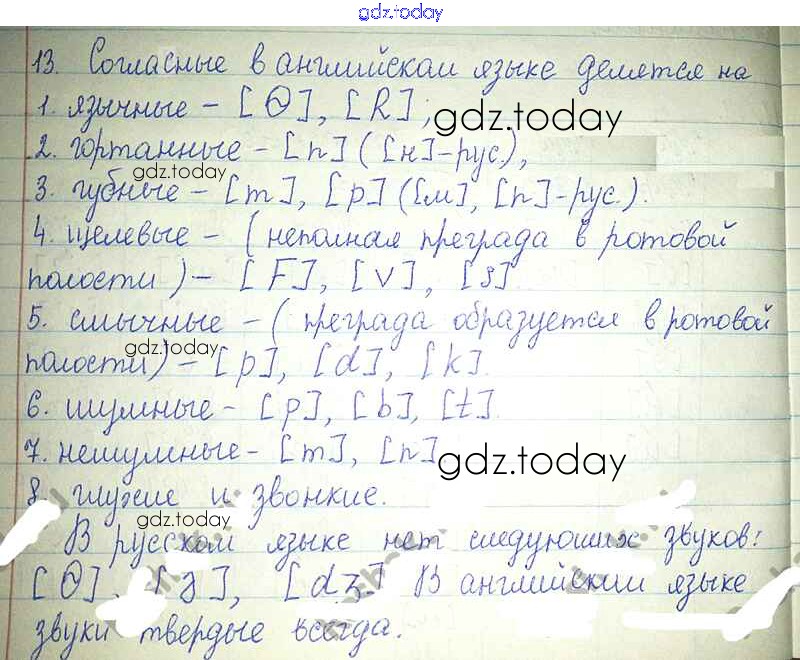 gdz.today
13. Согласные в английском языке делятся на
1. язычные - [Θ], [R],
gdz.today
2. гортанные - [n] ([н]-рус.),
gdz.today
3. губные - [m], [p] ([м], [п]-рус.).
4. щелевые - (неполная преграда в ротовой
полости) - [F], [v], [s]
5. смычные - (преграда образуется в ротовой
gdz.today
полости) - [p], [d], [k].
6. шумные - [p], [b], [t].
7. нешумные - [m], [n]
gdz.today
8. глухие и звонкие.
gdz.today
В русском языке нет следующих звуков:
[Θ], [з], [dз] В английский языке
звуки твердые всегда.